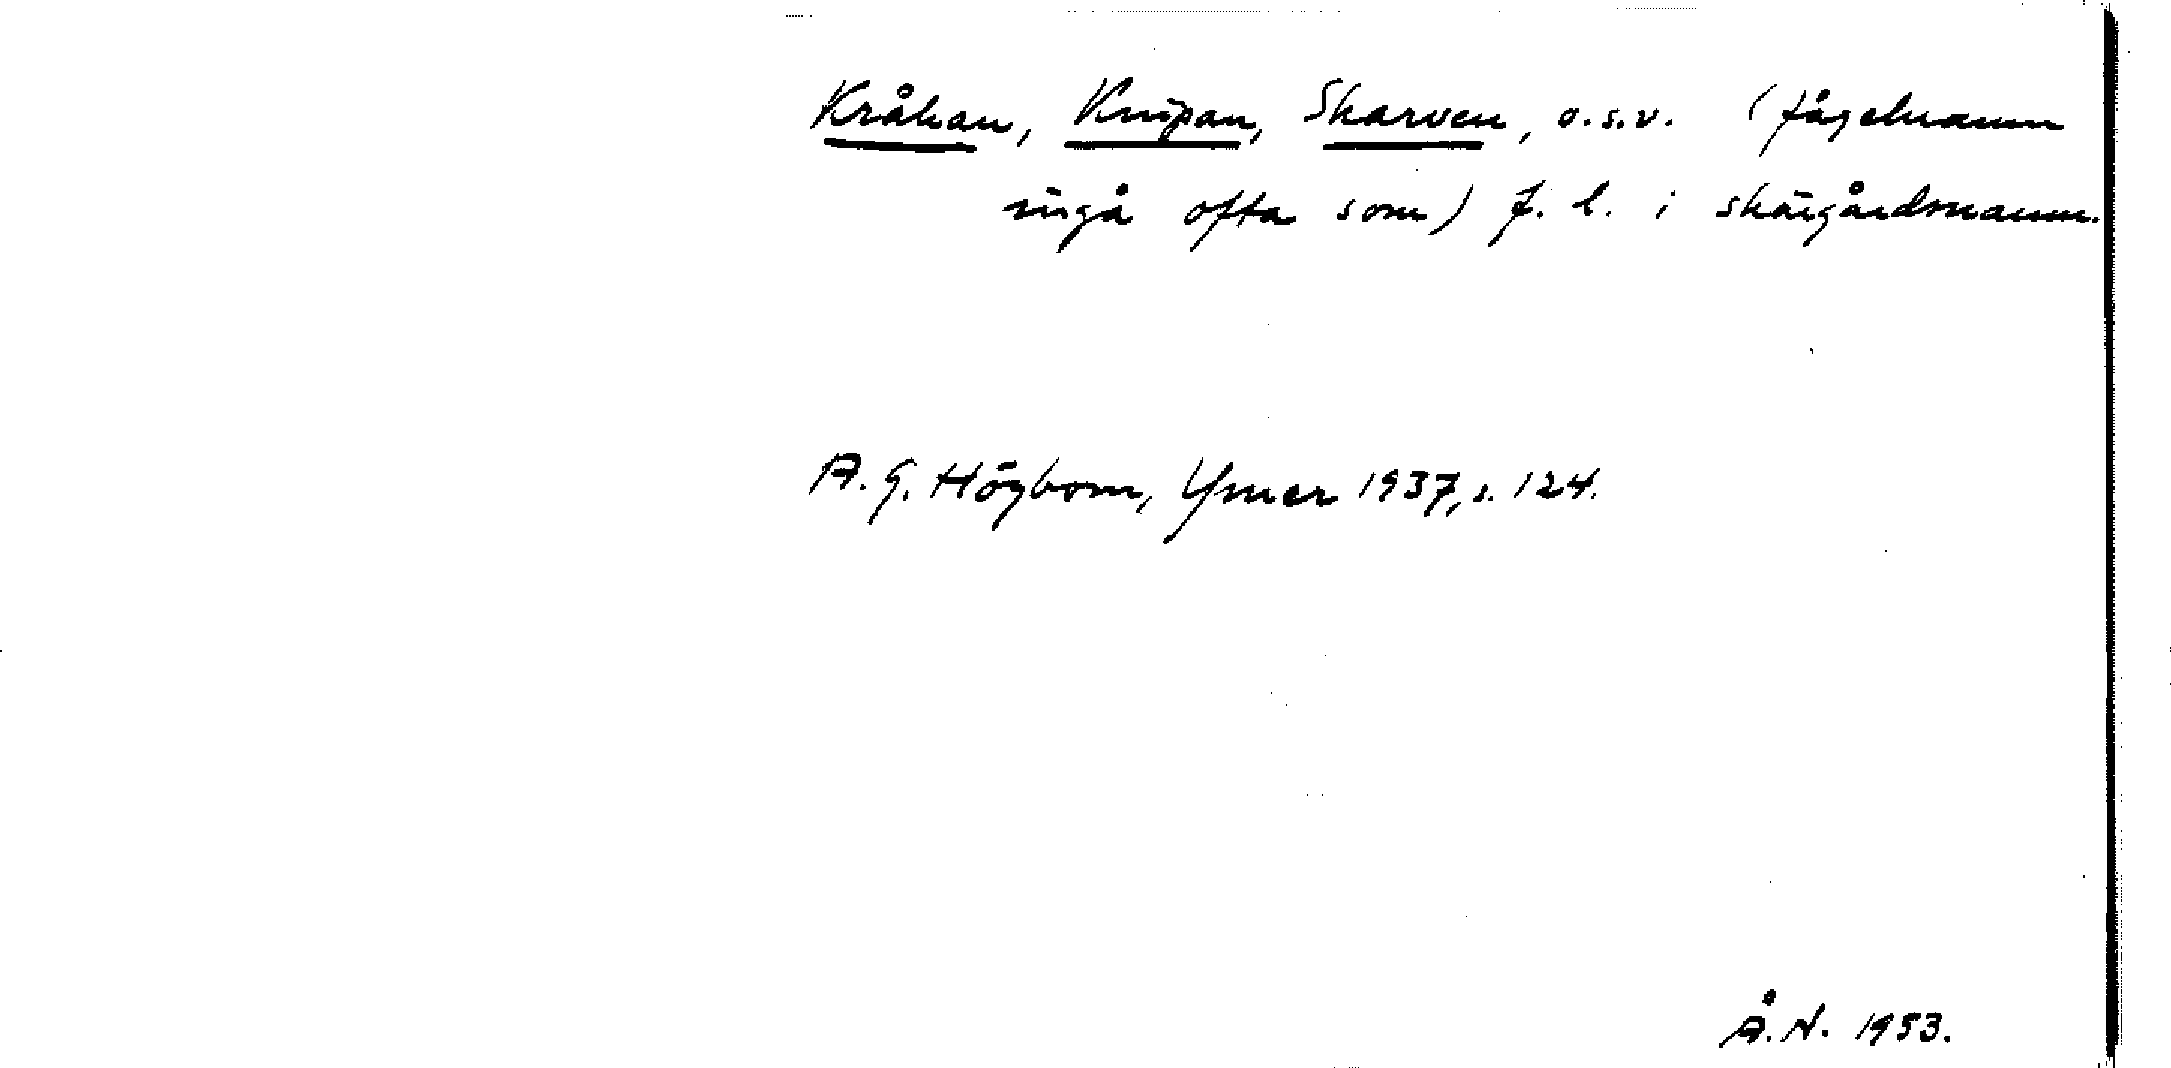 Kråkan, Knipan, Skarven, o.s.v. (fågelnamn
ingå ofta som) f. l. i skärgårdsnamn.
A. G. Högbom, Ymer 1937, s. 124.
Å. N. 1953.